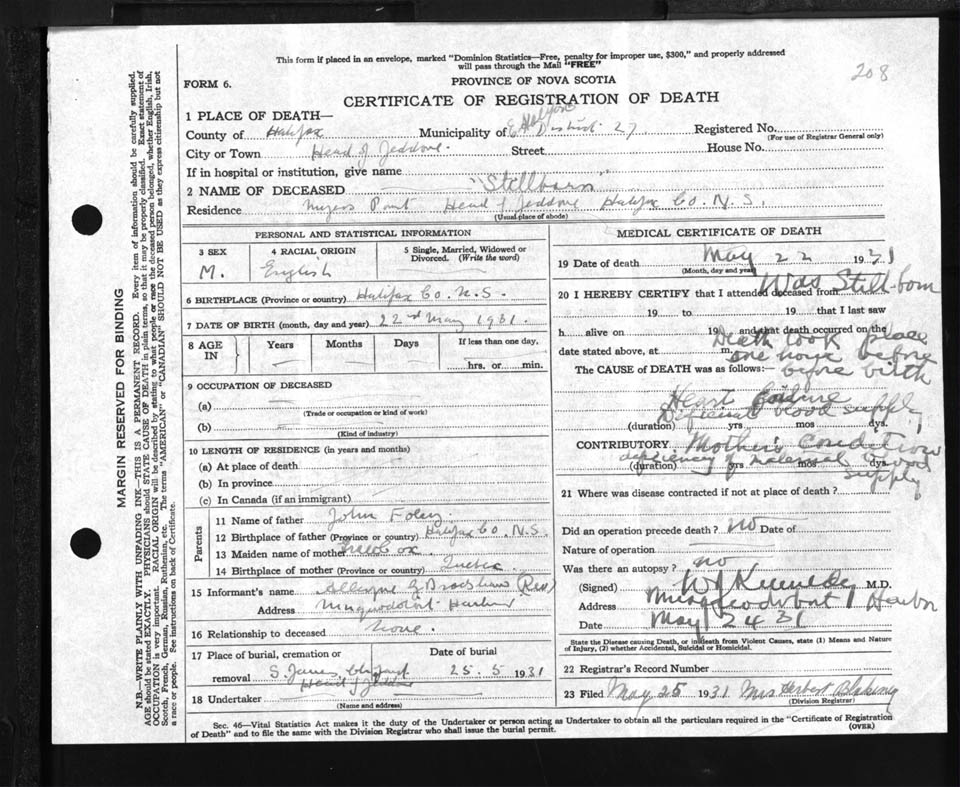 This form if placed in an envelope, marked "Dominion Statistics—Free, penalty for improper use, $300," and properly addressed
will pass through the Mail "FREE"
208
FORM 6.
PROVINCE OF NOVA SCOTIA
CERTIFICATE OF REGISTRATION OF DEATH
1 PLACE OF DEATH—
County of Halifax Municipality of E. Halifax District 27 Registered No.
(For use of Registrar General only)
City or Town Head of Jeddore. Street House No.
If in hospital or institution, give name
2 NAME OF DECEASED "Stillborn"
Residence Myers Point Head of Jeddore Halifax Co. N.S.
(Usual place of abode)
PERSONAL AND STATISTICAL INFORMATION
3 SEX 4 RACIAL ORIGIN 5 Single, Married, Widowed or
Divorced. (Write the word)
M. English
6 BIRTHPLACE (Province or country) Halifax Co. N.S.
7 DATE OF BIRTH (month, day and year) 22nd May 1931.
8 AGE IN Years Months Days If less than one day,
hrs. or min.
9 OCCUPATION OF DECEASED
(a)
(Trade or occupation or kind of work)
(b)
(Kind of industry)
10 LENGTH OF RESIDENCE (in years and months)
(a) At place of death
(b) In province
(c) In Canada (if an immigrant)
Parents
11 Name of father John Foley
12 Birthplace of father (Province or country) Halifax Co. N.S.
13 Maiden name of mother Cox
14 Birthplace of mother (Province or country) Quebec.
15 Informant's name G Bradshaw (Rev)
Address Musquodoboit Harbour
16 Relationship to deceased None.
17 Place of burial, cremation or Date of burial
removal S. James 25.5 1931
Head of Jeddore
18 Undertaker
(Name and address)
MEDICAL CERTIFICATE OF DEATH
19 Date of death May 22 1931
(Month, day and year)
20 I HEREBY CERTIFY that I attended deceased from Was Still-born
19 to 19 that I last saw
h alive on 19 and that death occurred on the
date stated above, at m. Death took place
one hour before
The CAUSE of DEATH was as follows:— before birth
Heart Failure
Deficient blood supply
(duration) yrs. mos. dys.
CONTRIBUTORY Mother's Condition
deficiency of maternal blood
supply
(duration) yrs mos dys
21 Where was disease contracted if not at place of death?
Did an operation precede death? no Date of
Nature of operation
Was there an autopsy? no
(Signed) W Kennedy M.D.
Address Musquodoboit Harbor
Date May 24 31
State the Disease causing Death, or in death from Violent Causes, state (1) Means and Nature
of Injury, (2) whether Accidental, Suicidal or Homicidal.
22 Registrar's Record Number
23 Filed May 25 1931 Mrs Herbert Blakeney
(Division Registrar)
Sec. 46—Vital Statistics Act makes it the duty of the Undertaker or person acting as Undertaker to obtain all the particulars required in the "Certificate of Registration
of Death" and to file the same with the Division Registrar who shall issue the burial permit.
(OVER)
MARGIN RESERVED FOR BINDING
N.B.—WRITE PLAINLY WITH UNFADING INK—THIS IS A PERMANENT RECORD. Every item of information should be carefully supplied.
AGE should be stated EXACTLY. PHYSICIANS should STATE CAUSE OF DEATH in plain terms, so that it may be properly classified. Exact statement of
OCCUPATION is very important. RACIAL ORIGIN will be described by stating to what people or race the deceased person belonged, whether English, Irish,
Scotch, French, German, Russian, Ruthenian, etc. The terms "AMERICAN" or "CANADIAN" SHOULD NOT BE USED as they express citizenship but not
a race or people. See instructions on back of Certificate.